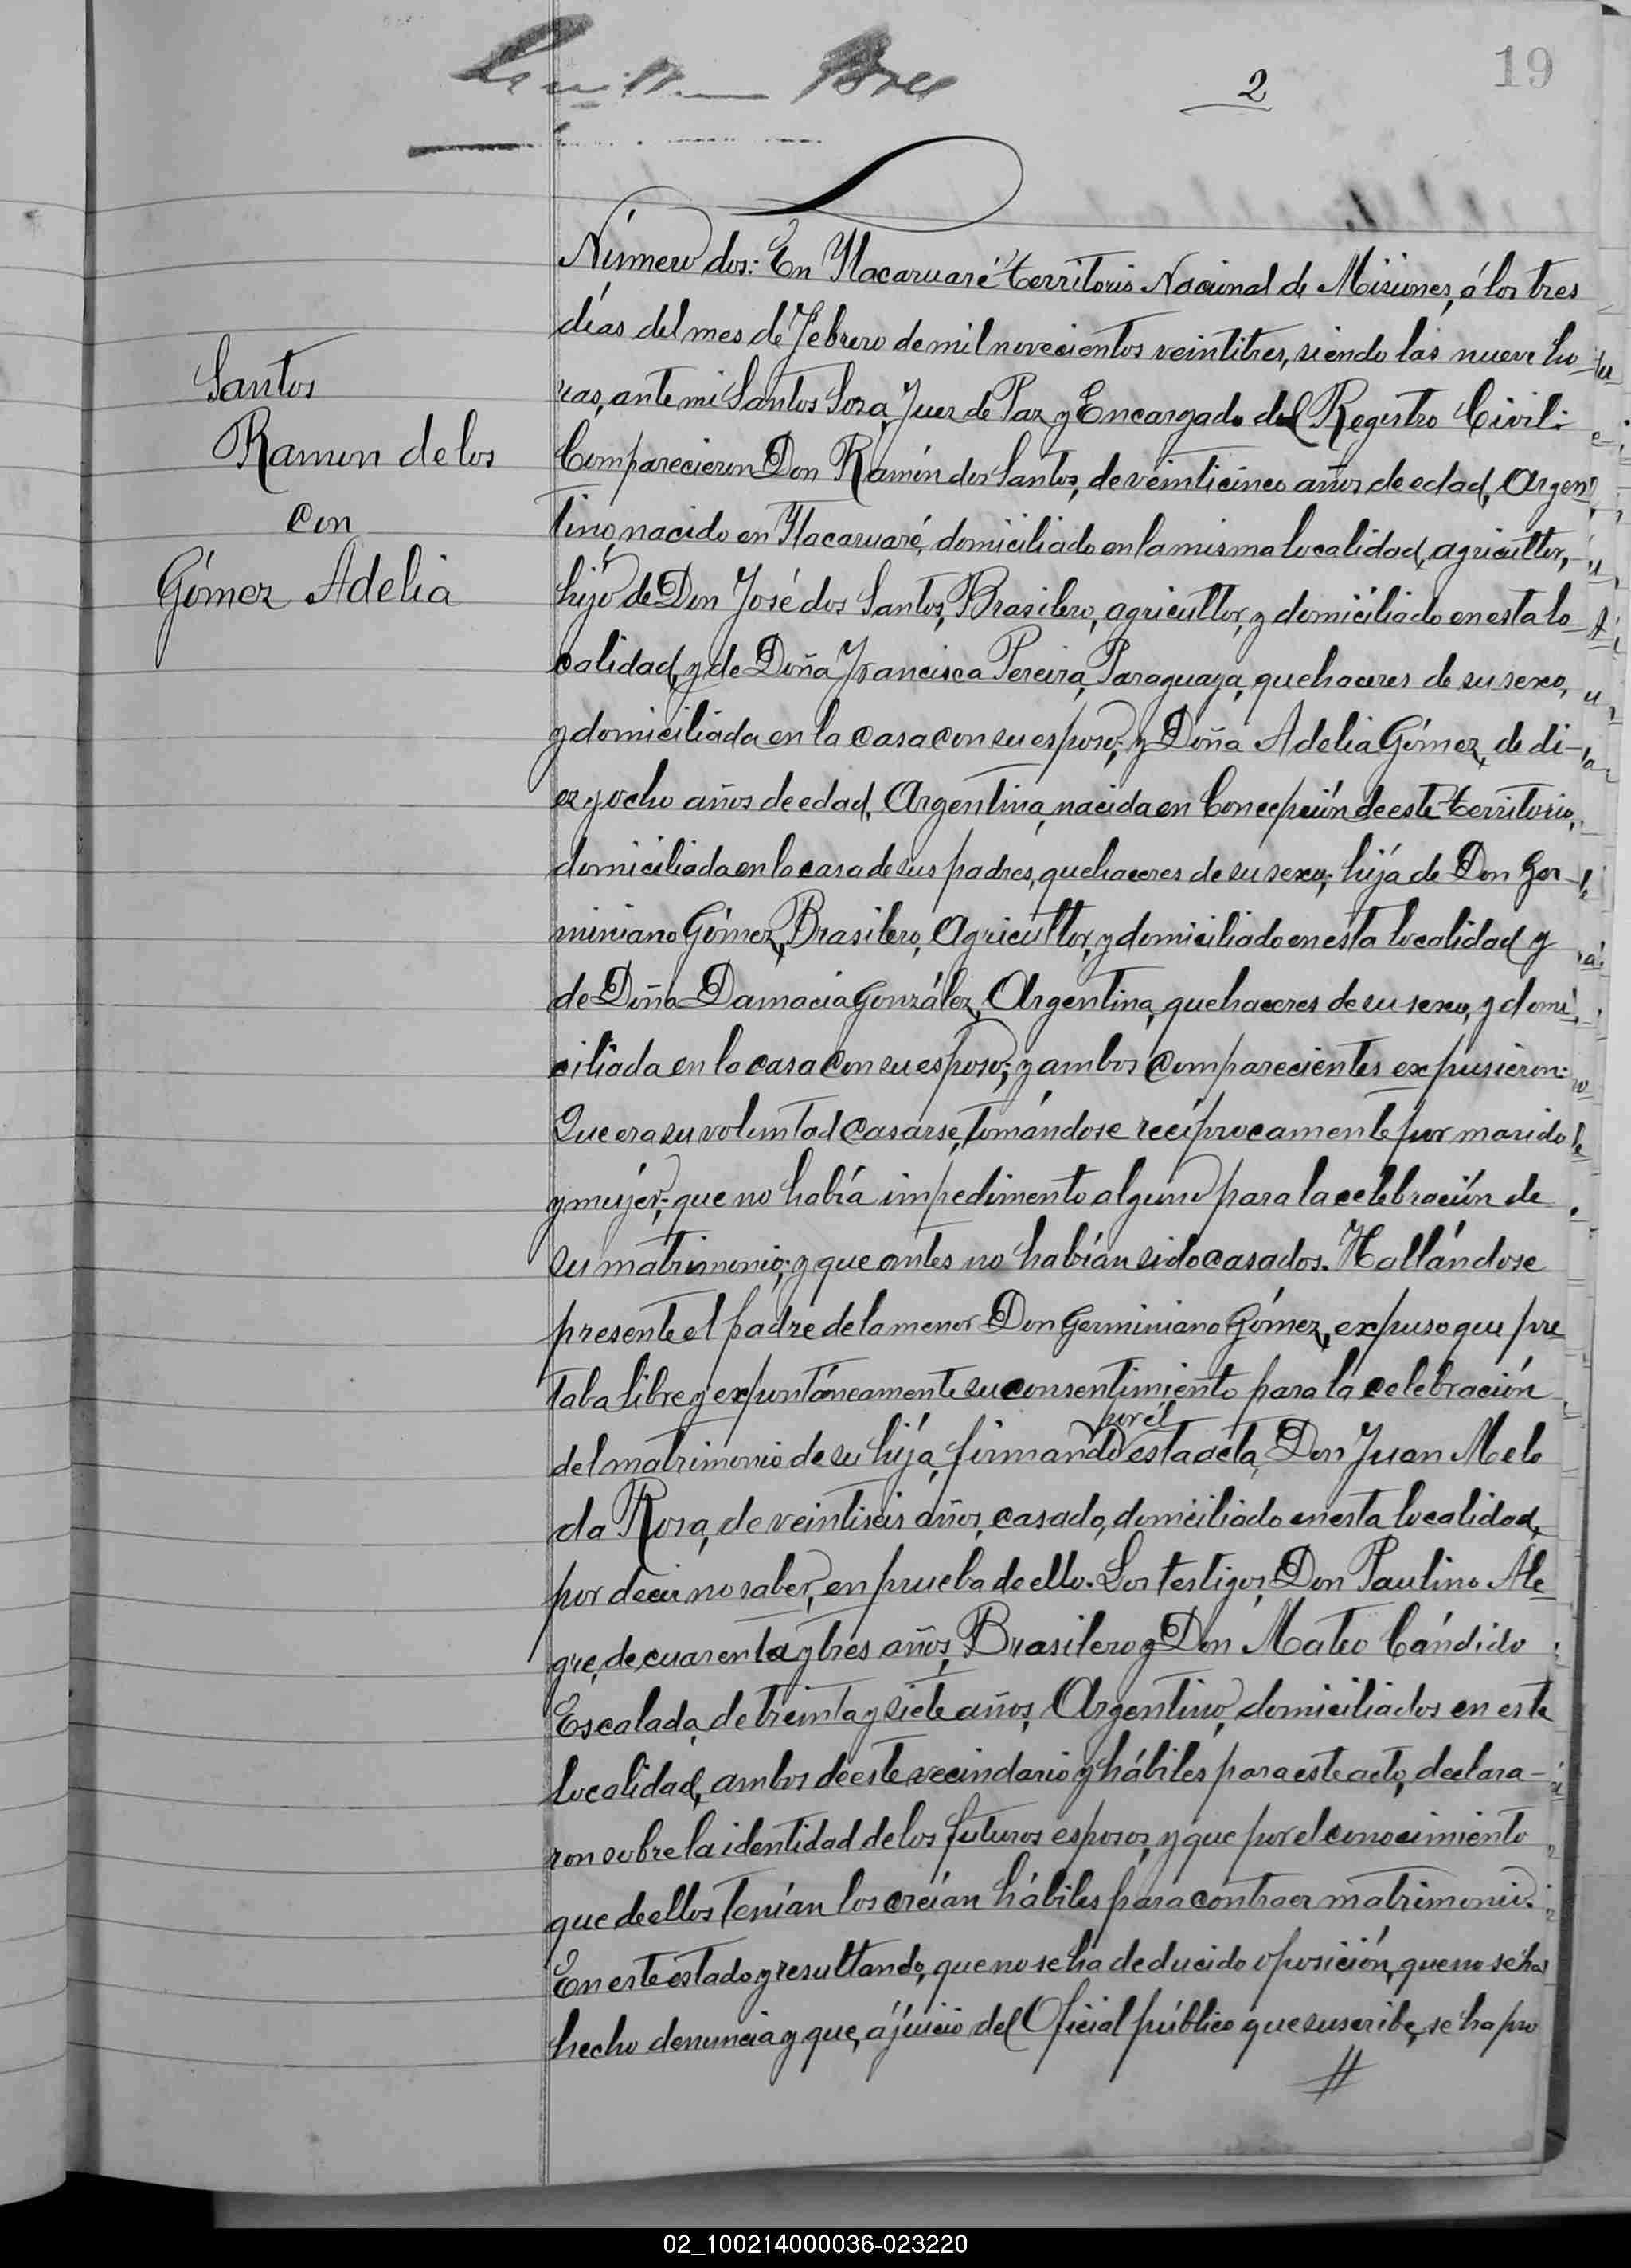 19
2
Santos
Ramon de los
con
Gómez Adelia
Número dos: En Ytacaruaré territorio Nacional de Misiones, á los tres
días del mes de Febrero de mil novecientos veintitres, siendo las nueve ho-
ras, ante mi Santos Sosa, Juez de Paz y Encargado del Registro Civil:
Comparecieron Don Ramón dos Santos, de veinticinco años de edad, Argen-
tino, nacido en Ytacaruaré, domiciliado en la misma localidad, agricultor,
hijo de Don José dos Santos, Brasilero, agricultor, y domiciliado en esta lo-
calidad, y de Doña Francisca Pereira, Paraguaya, quehaceres de su sexo,
y domiciliada en la casa con su esposo; y Doña Adelia Gómez, de di-
ez y ocho años de edad, Argentina, nacida en Concepción de este territorio,
domiciliada en la casa de sus padres, quehaceres de su sexo; hija de Don Ger-
miniano Gómez, Brasilero, Agricultor, y domiciliado en esta localidad y
de Doña Damacia González, Argentina, quehaceres de su sexo, y domi-
ciliada en la casa con su esposo; y ambos comparecientes expusieron:
Que era su voluntad casarse, tomándose recíprocamente por marido
y mujer; que no había impedimento alguno para la celebración de
su matrimonio; y que antes no habían sido casados. Hallándose
presente el padre de la menor Don Germiniano Gómez, expuso que pre
taba libre y expontáneamente su consentimiento para la celebración
del matrimonio de su hija, firmando por él esta acta, Don Juan Melo
da Rosa, de veintiseis años, casado, domiciliado en esta localidad,
por decir no saber, en prueba de ello. Los testigos, Don Paulino Ale-
gre, de cuarenta y tres años, Brasilero y Don Mateo Cándido
Escalada, de treinta y siete años, Argentino, domiciliados en esta
localidad, ambos de este vecindario y hábiles para este acto, declara-
ron sobre la identidad de los futuros esposos, y que por el conocimiento
que de ellos tenían los creían hábiles para contraer matrimonio.
En este estado y resultando, que no se ha deducido oposición, que no se ha
hecho denuncia y que, á juicio del Oficial público que suscribe, se ha pro
//
02_100214000036-023220